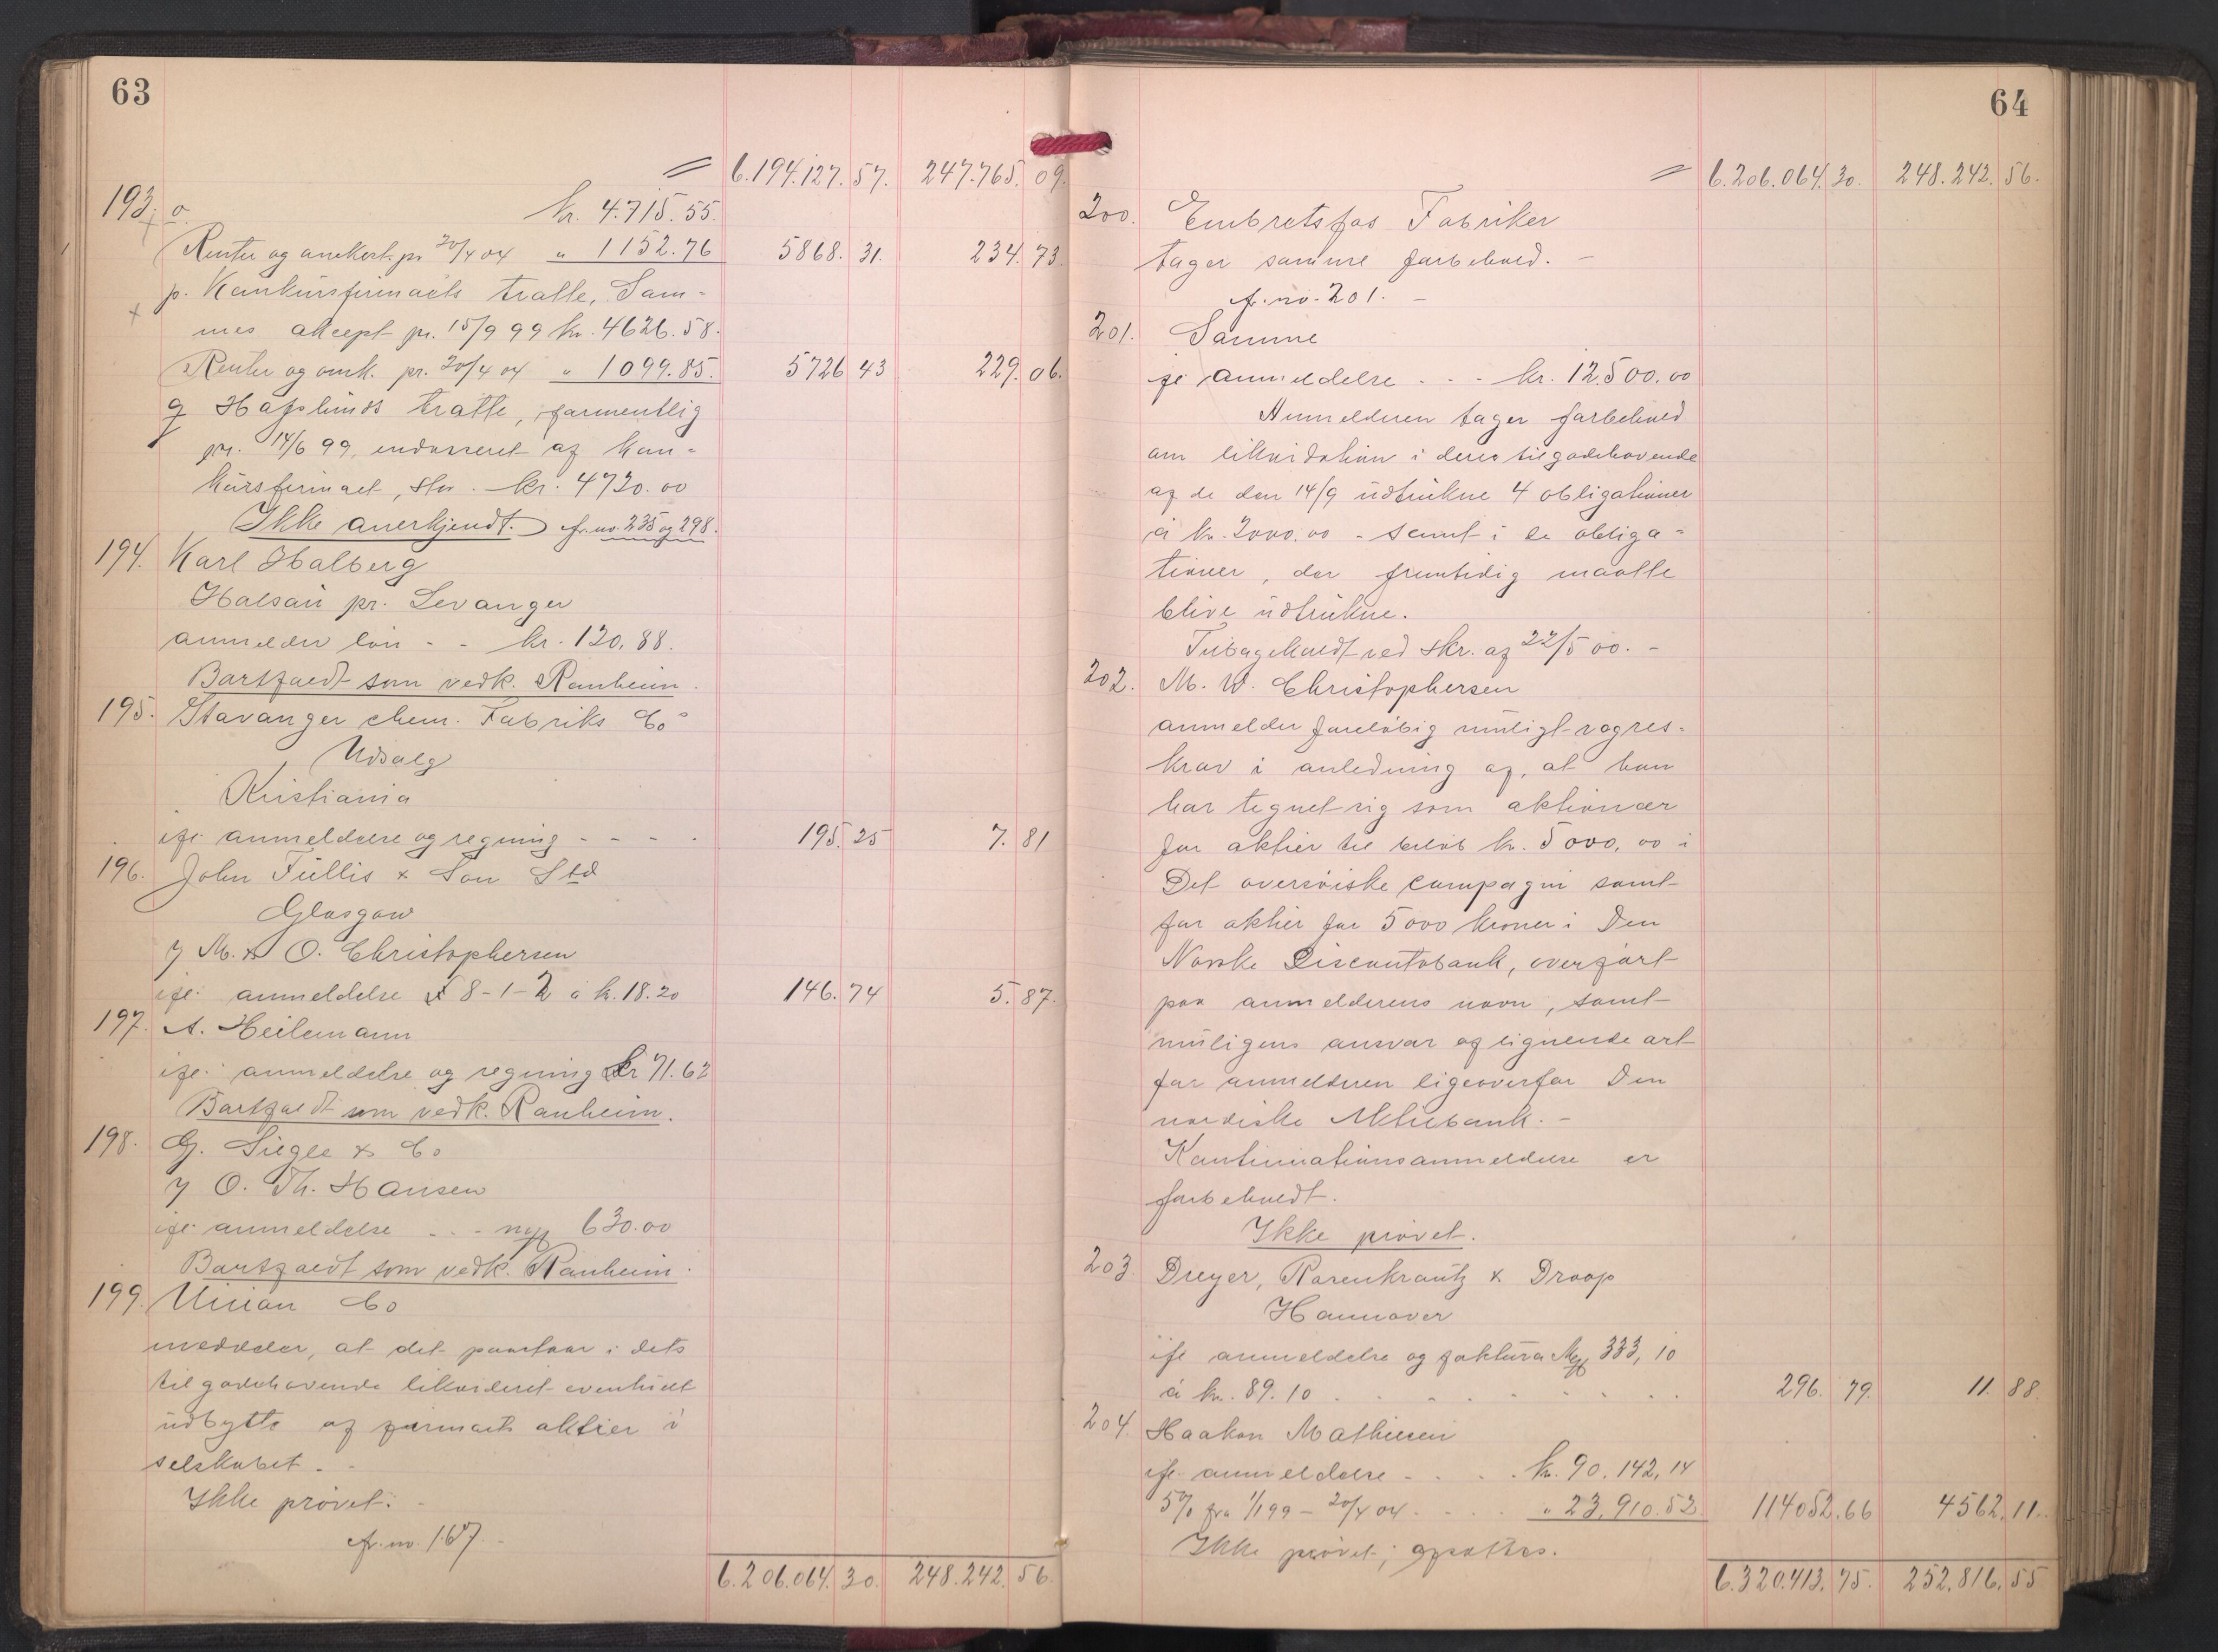 63
= 6.194.127. 57. 247.765. 09.
193. o. kr. 4.715.55.
Renter og omkost. pr 20/4 04 " 1152.76 5868. 31. 234. 73.
p. Konkursfirmaets tratte, Sam-
mes aksept pr. 15/9 99 kr. 4626.58.
Renter og omk. pr. 20/4 04 " 1099.85. 5726 43 229. 06.
q Hafslunds tratte, formentlig
pr. 14/6 99, endosseret af kon-
kursfirmaet, stor. kr. 4720.00
Ikke anerkjendt. cfr. no. 235 og 298.
194. Karl Halberg
Halsan pr. Levanger
anmelder løn - - kr. 120.88.
Bortfaldt som vedk. Ranheim.
195. Stavanger chem. Fabriks Co
Udsalg
Kristiania
ifl. anmeldelse og regning - - - - 195. 25 7. 81
196. John Tullis & Son Ltd
Glasgow
v/ M. & O. Christophersen
ifl. anmeldelse £ 8-1-2 à k. 18.20 146. 74 5. 87.
197. A. Heilemann
ifl. anmeldelse og regning kr 71.62
Bortfaldt som vedk. Ranheim.
198. G. Siegle & Co
v/ O. Th. Hansen
ifl. anmeldelse - . - 630.00
Bortfaldt som vedk. Ranheim.
199. Union Co
meddeler, at det paastaar i dets
tilgodehavende likvideret eventuelt
udbytte af firmaets aktier i
selskabet. -
Ikke prøvet. -
cfr. no. 167. -
6.206.064. 30. 248.242. 56.
64
= 6.206.064. 30. 248.242. 56.
200. Embretsfos Fabriker
tager samme forbehold. -
cfr. no. 201. -
201. Samme
ifl. anmeldelse - - - kr. 12.500.00
Anmelderen tager forbehold
om likvidation i deres tilgodehavende
af de den 14/9 udtrukne 4 obligationer
à kr. 2000.00 - samt i de obliga-
tioner, der fremtidig maatte
blive udtrukne.
Tilbagekaldt ved skr. af 22/5 00. -
202. M. W. Christophersen
anmelder foreløbig muligt regres-
krav i anledning af, at han
har tegnet sig som aktionær
for aktier til beløb kr. 5000,00 i
Det oversøiske Compagni samt
for aktier for 5000 kroner i Den
Norske Discontobank, overført
paa anmelderens navn, samt
muligens ansvar af lignende art
for anmelderen ligeoverfor Den
nordiske Aktiebank. -
Kontinuationsanmeldelse er
forbeholdt.
Ikke prøvet.
203. Dreyer, Rosenkrantz & Droop
Hannover
ifl anmeldelse og faktura 333,10
à kr. 89.10 . . . . . . . . 296. 79. 11. 88.
204. Haakon Mathiesen
ifl. anmeldelse - . . . . kr. 90.142,14
5% fra 1/1 99 - 20/4 04 . . . . " 23.910.52 114052.66 4562. 11.
Ikke prøvet; opsættes.
6.320.413. 75. 252.816. 55